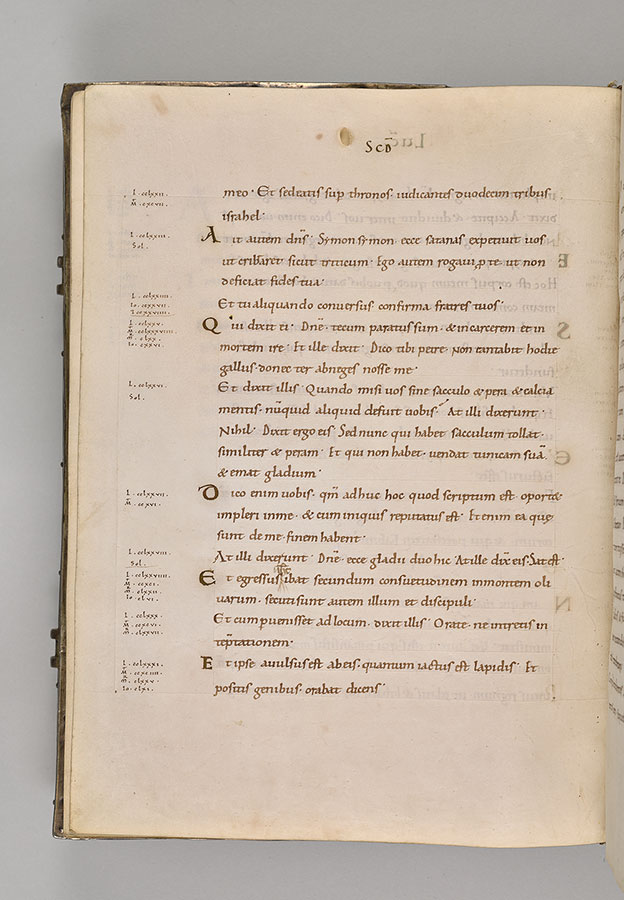 Scd
L. cclxxii.
meo· Et sedeatis sup thronos· iudicantes duodecim tribus
israhel·
L. cclxxiii.
Sol.
Ait autem dns· Symon symon ecce satanas expetivit vos
ut cribaret sicut triticum· Ego autem rogavi p te· ut non
deficiat fides tua·
L. cclxxiiii.
Et tu aliquando conversus confirma fratres tuos·
L. cclxxv.
Qui dixit ei· Dne· tecum paratus sum· & in carcerem et in
mortem ire· Et ille dixit· Dico tibi petre· Non cantabit hodie
gallus· donec ter abneges nosse me·
L. cclxxvi.
Sol.
Et dixit illis· Quando misi vos sine sacculo & pera & calcia
mentis· nuquid aliquid defuit vobis· At illi dixerunt·
Nihil· Dixit ergo eis· Sed nunc qui habet sacculum tollat·
similiter & peram· Et qui non habet· vendat tunicam suā·
& emat gladium·
L. cclxxvii.
Dico enim vobis· qm adhuc hoc quod scriptum est· oport&
impleri in me· & cum iniquis reputatus est· Etenim ea que
sunt de me· finem habent·
L. cclxxviii.
Sol.
At illi dixerunt· Dne· ecce gladii duo hic· At ille dix eis· Sat est·
L. cclxxviiii.
Et egressus ibat secundum consuetudinem in montem oli
varum· secuti sunt autem illum et discipuli·
L. cclxxx.
Et cum pvenisset ad locum· dixit illis· Orate· ne intretis in
teptationem·
L. cclxxxi.
Et ipse avulsus est ab eis· quantum iactus est lapidis· Et
positis genibus· orabat dicens·